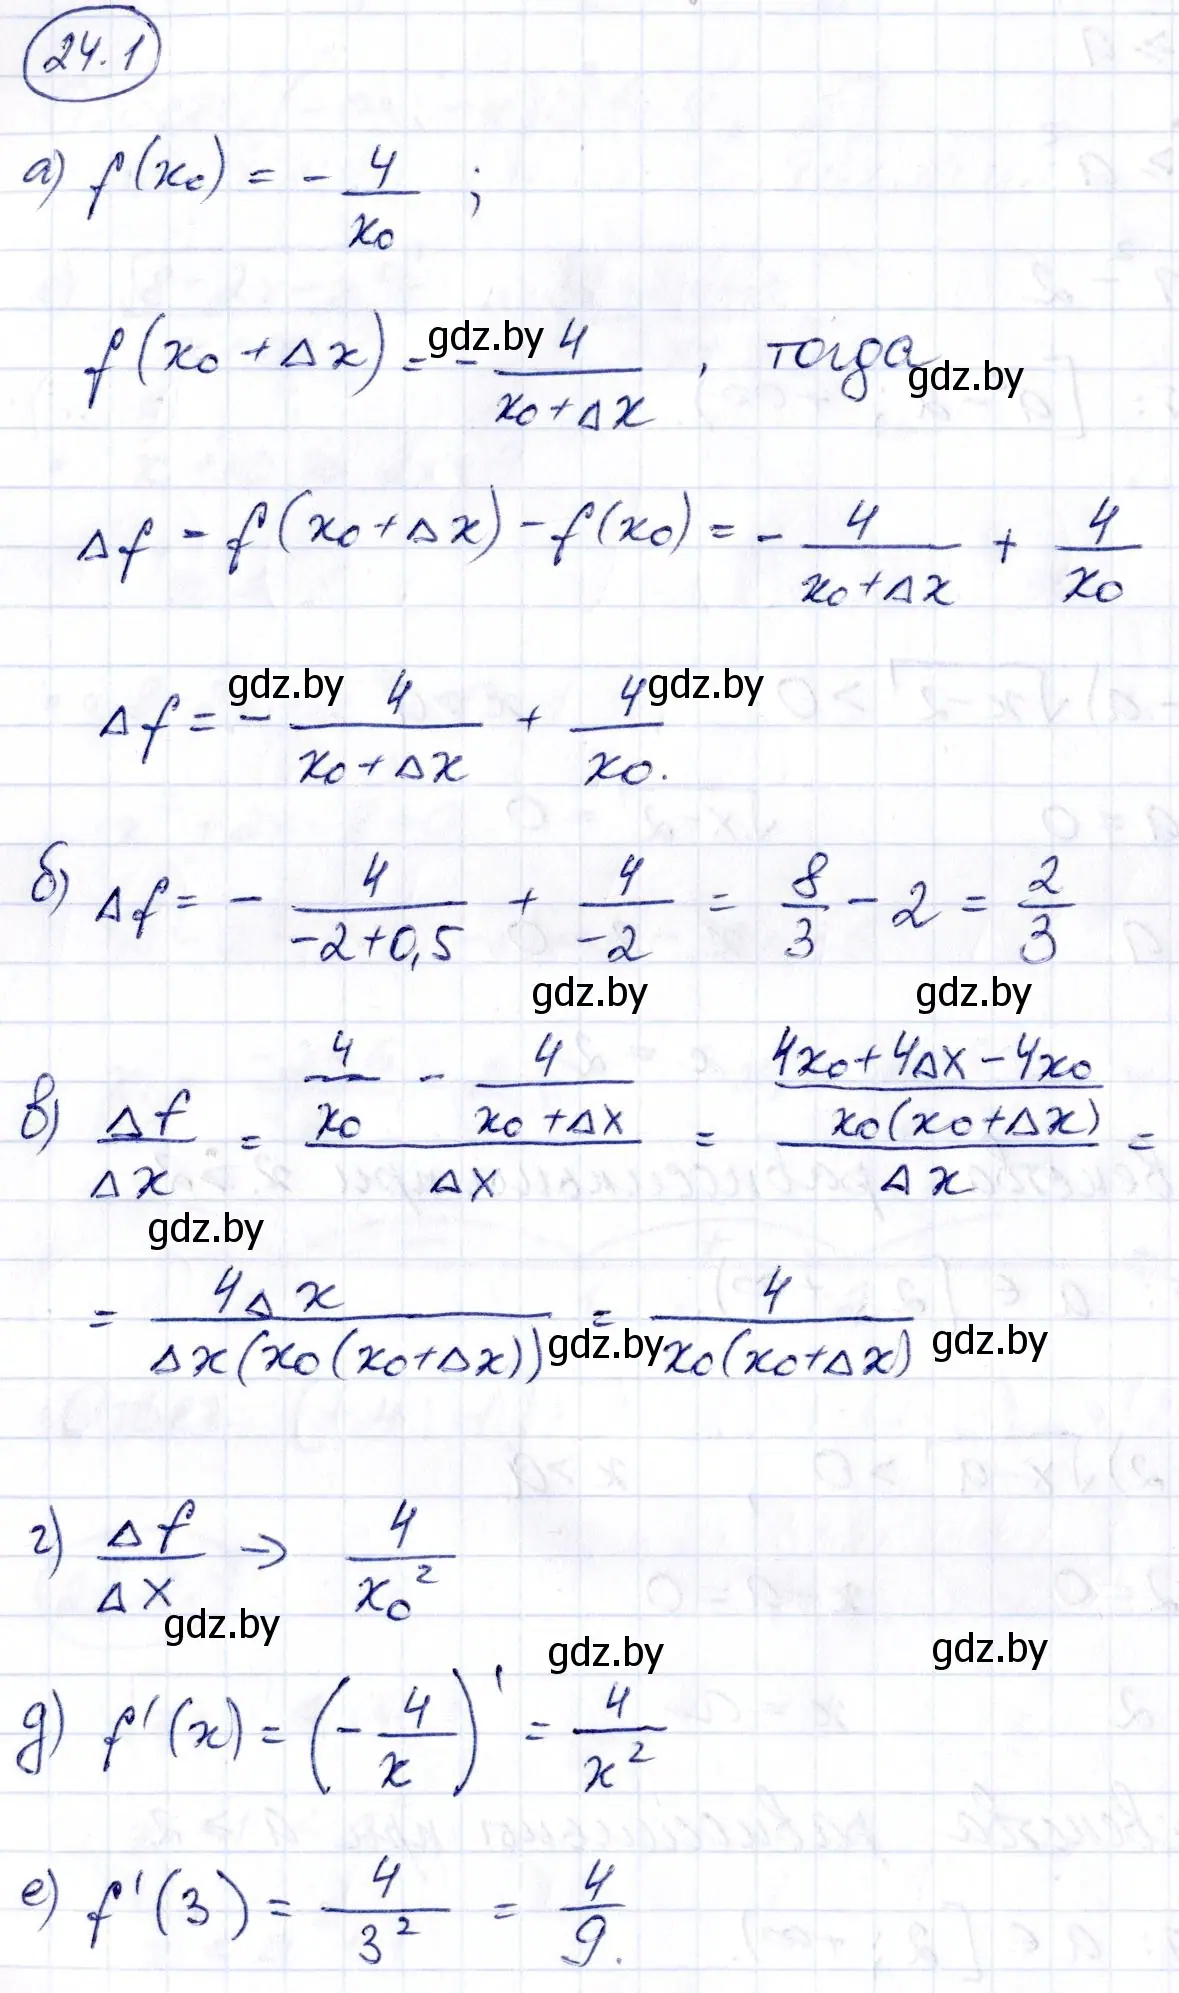 24.1
а) f(x₀) = - 4/x₀ ;
f(x₀ + Δx) = - 4/(x₀ + Δx) , тогда
gdz.by gdz.by
Δf = f(x₀ + Δx) - f(x₀) = - 4/(x₀ + Δx) + 4/x₀
Δf = - 4/(x₀ + Δx) + 4/x₀.
gdz.by gdz.by
б) Δf = - 4/(-2+0,5) + 4/(-2) = 8/3 - 2 = 2/3
gdz.by gdz.by
в) Δf/Δx = (4/x₀ - 4/(x₀ + Δx))/Δx = ((4x₀ + 4Δx - 4x₀)/(x₀(x₀ + Δx)))/Δx =
gdz.by
= 4Δx/(Δx(x₀(x₀ + Δx))) = 4/(x₀(x₀ + Δx))
gdz.by gdz.by
г) Δf/Δx → 4/x₀²
gdz.by gdz.by gdz.by
д) f'(x) = (- 4/x)' = 4/x²
е) f'(3) = 4/3² = 4/9.